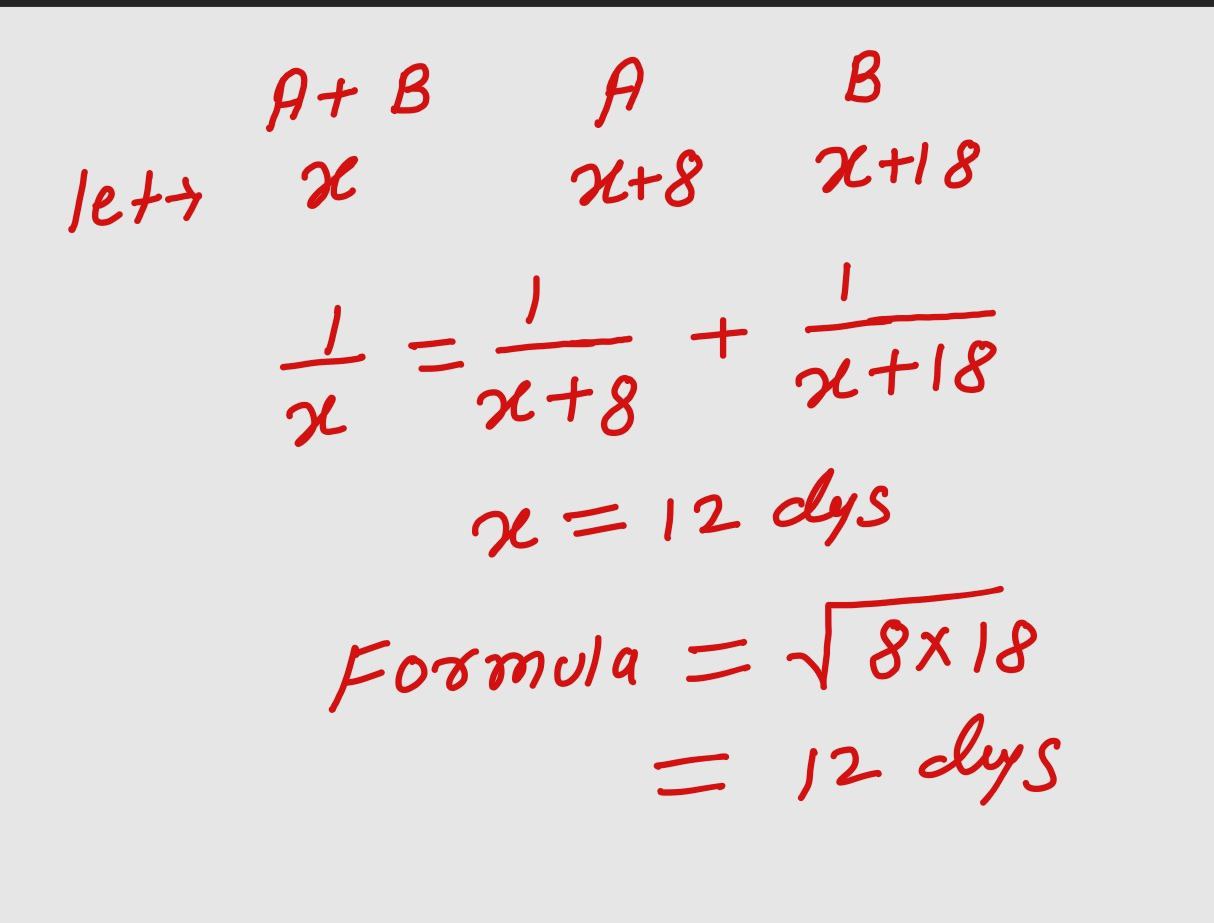 A + B A B
let→ x x+8 x+18
1/x = 1/(x+8) + 1/(x+18)
x = 12 dys
Formula = √8×18
= 12 dys